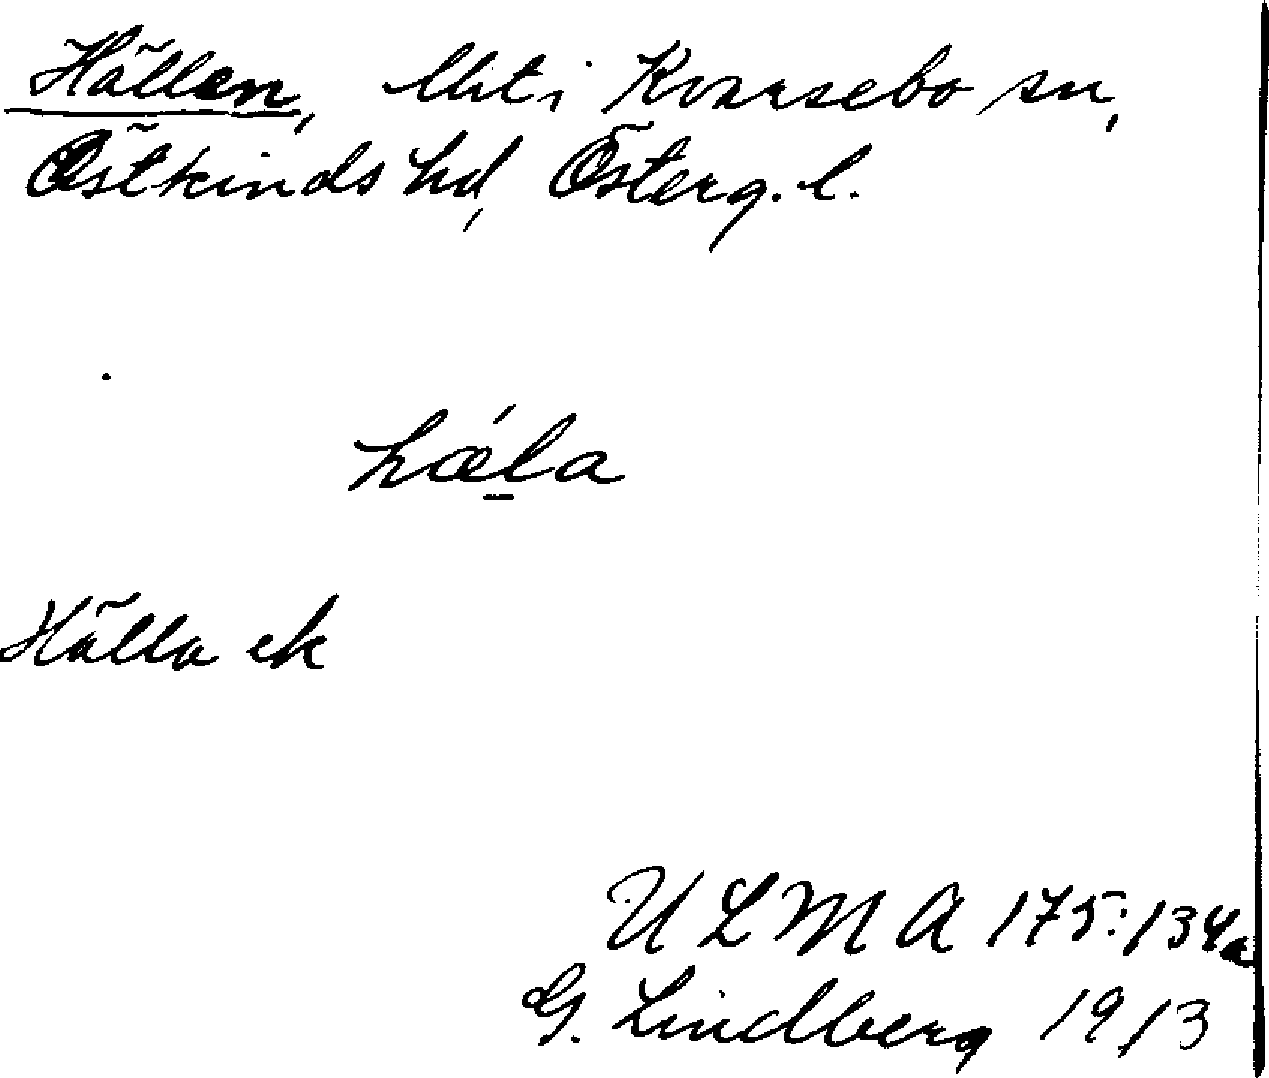 Hällen, Utit i Kvarsebo sn,
Östkinds hd, Österg. l.
hǽla
Hälla ek
ULMA 175:134a
G. Lindberg 1913